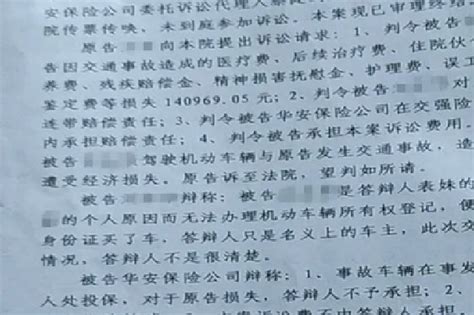 安保险公司委托诉讼代理人
院传票传唤，未到庭参加诉讼。本案现已审理终结
原告 向本院提出诉讼请求：1、判令被
告因交通事故造成的医疗费、后续治疗费、住院伙
养费、残疾赔偿金、精神损害抚慰金、护理费、误工
鉴定费等损失 140969.05 元；2、判令被告
连带赔偿责任；3、判令被告华安保险公司在交强险
内承担赔偿责任；4、判令被告承担本案诉讼费用
被告 驾驶机动车辆与原告发生交通事故，造
遭受经济损失。原告诉至法院，望判如所请。
被告 辩称：被告 是答辩人表妹的
的个人原因而无法办理机动车辆所有权登记，便
身份证买了车，答辩人只是名义上的车主，此次交
情况，答辩人不是很清楚。
被告华安保险公司辩称：1、事故车辆在事发
人处投保，对于原告损失，答辩人不予承担；2、
诉讼费不由答辩人承担